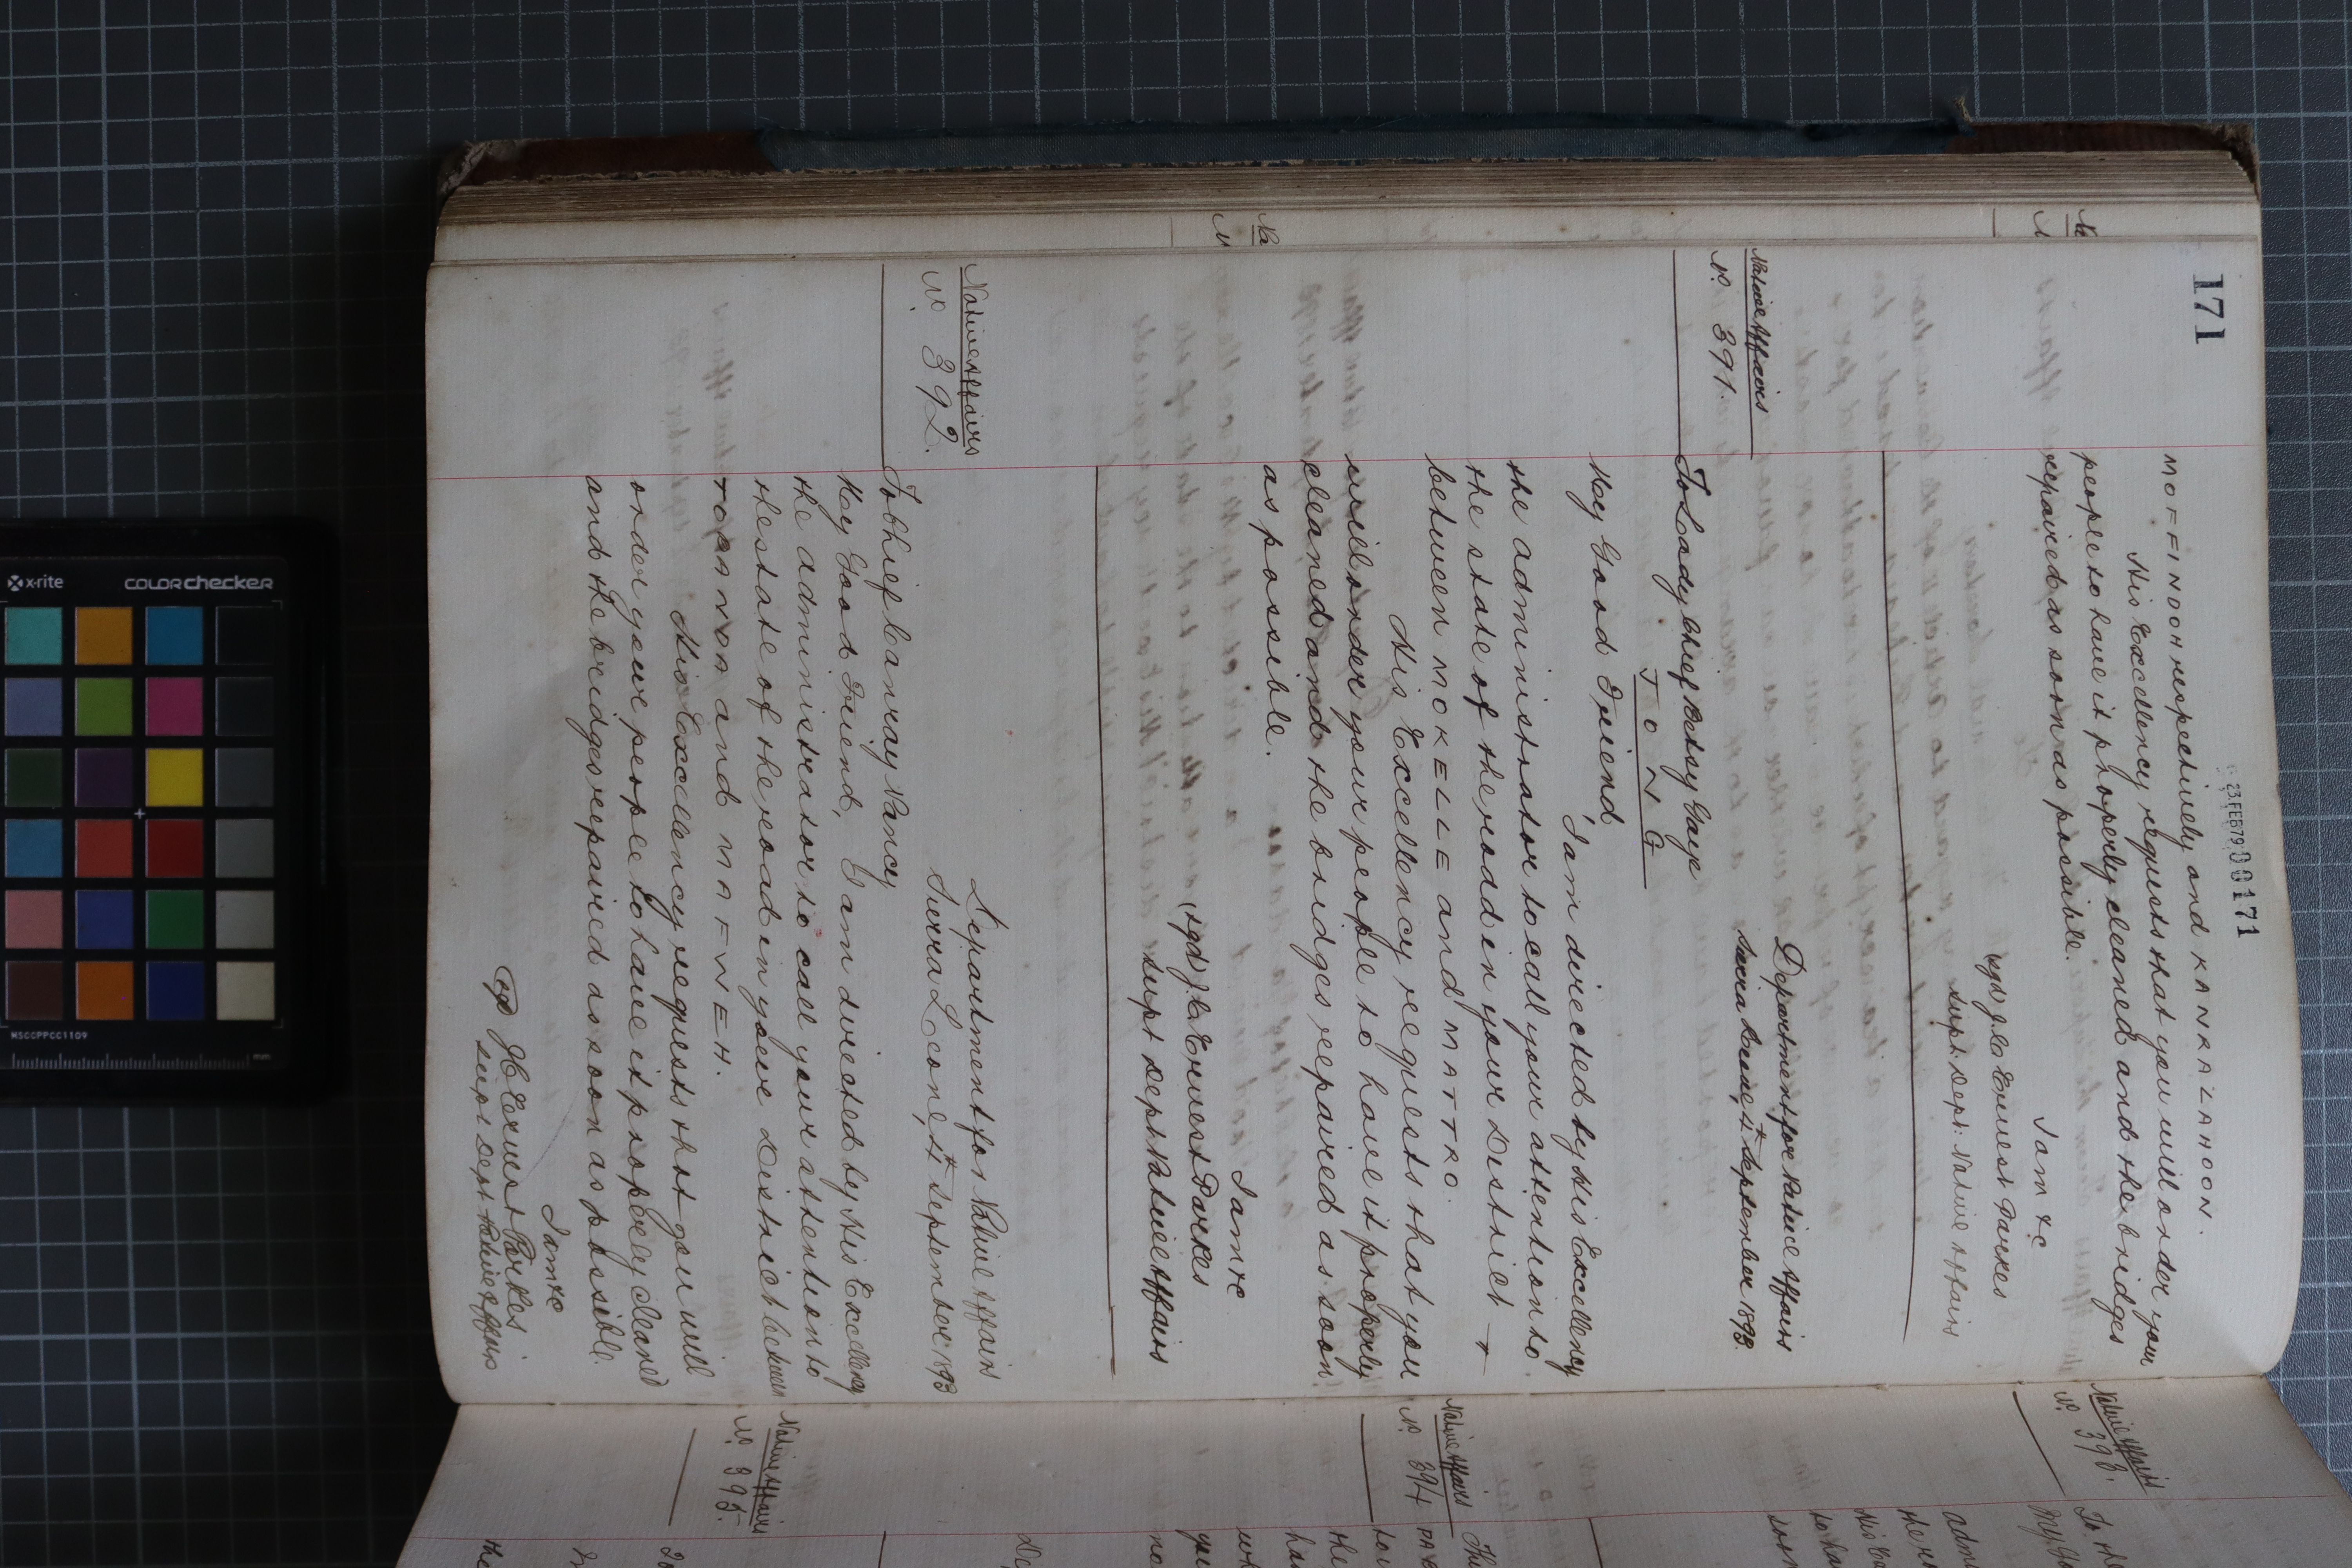 171
23 FEB 79 000171
MOFFINOOH respectively and KANRALAHOON.
His Excellency requests that you will order your
people to have it properly cleaned and the bridges
repaired as soon as possible.
I am &c
sgd J.C. Ernest Parkes
Supt. Dept. Native Affairs
Native Affairs
No. 391.
Department for Native Affairs
Sierra Leone, 4th September 1893.
To Lady Chief Betsy Gaye
TONG
My Good Friend,
I am directed by His Excellency
the administrator to call your attention to
the state of the road in your District
between MOKELLE and MATTRO.
His Excellency requests that you
will order your people to have it properly
cleaned and the bridges repaired as soon
as possible.
I am &c
(sgd) J.C. Ernest Parkes
Supt Dept Native Affairs
Native Affairs
No. 392.
Department for Native Affairs
Sierra Leone, 4th September 1893
To Chief Canray Vancy
My Good Friend, I am directed by His Excellency
the administrator to call your attention to
the state of the road in your District between
and MAFWEH.
His Excellency requests that you will
order your people to have it properly cleaned
and the bridges repaired as soon as possible.
I am &c
sgd J.C. Ernest Parkes
Supt Dept Native Affairs
Native Affairs
No. 393.
Native Affairs
No. 394
Native Affairs
No. 395.
x-rite
colorchecker
MSCCPPCC1109
mm